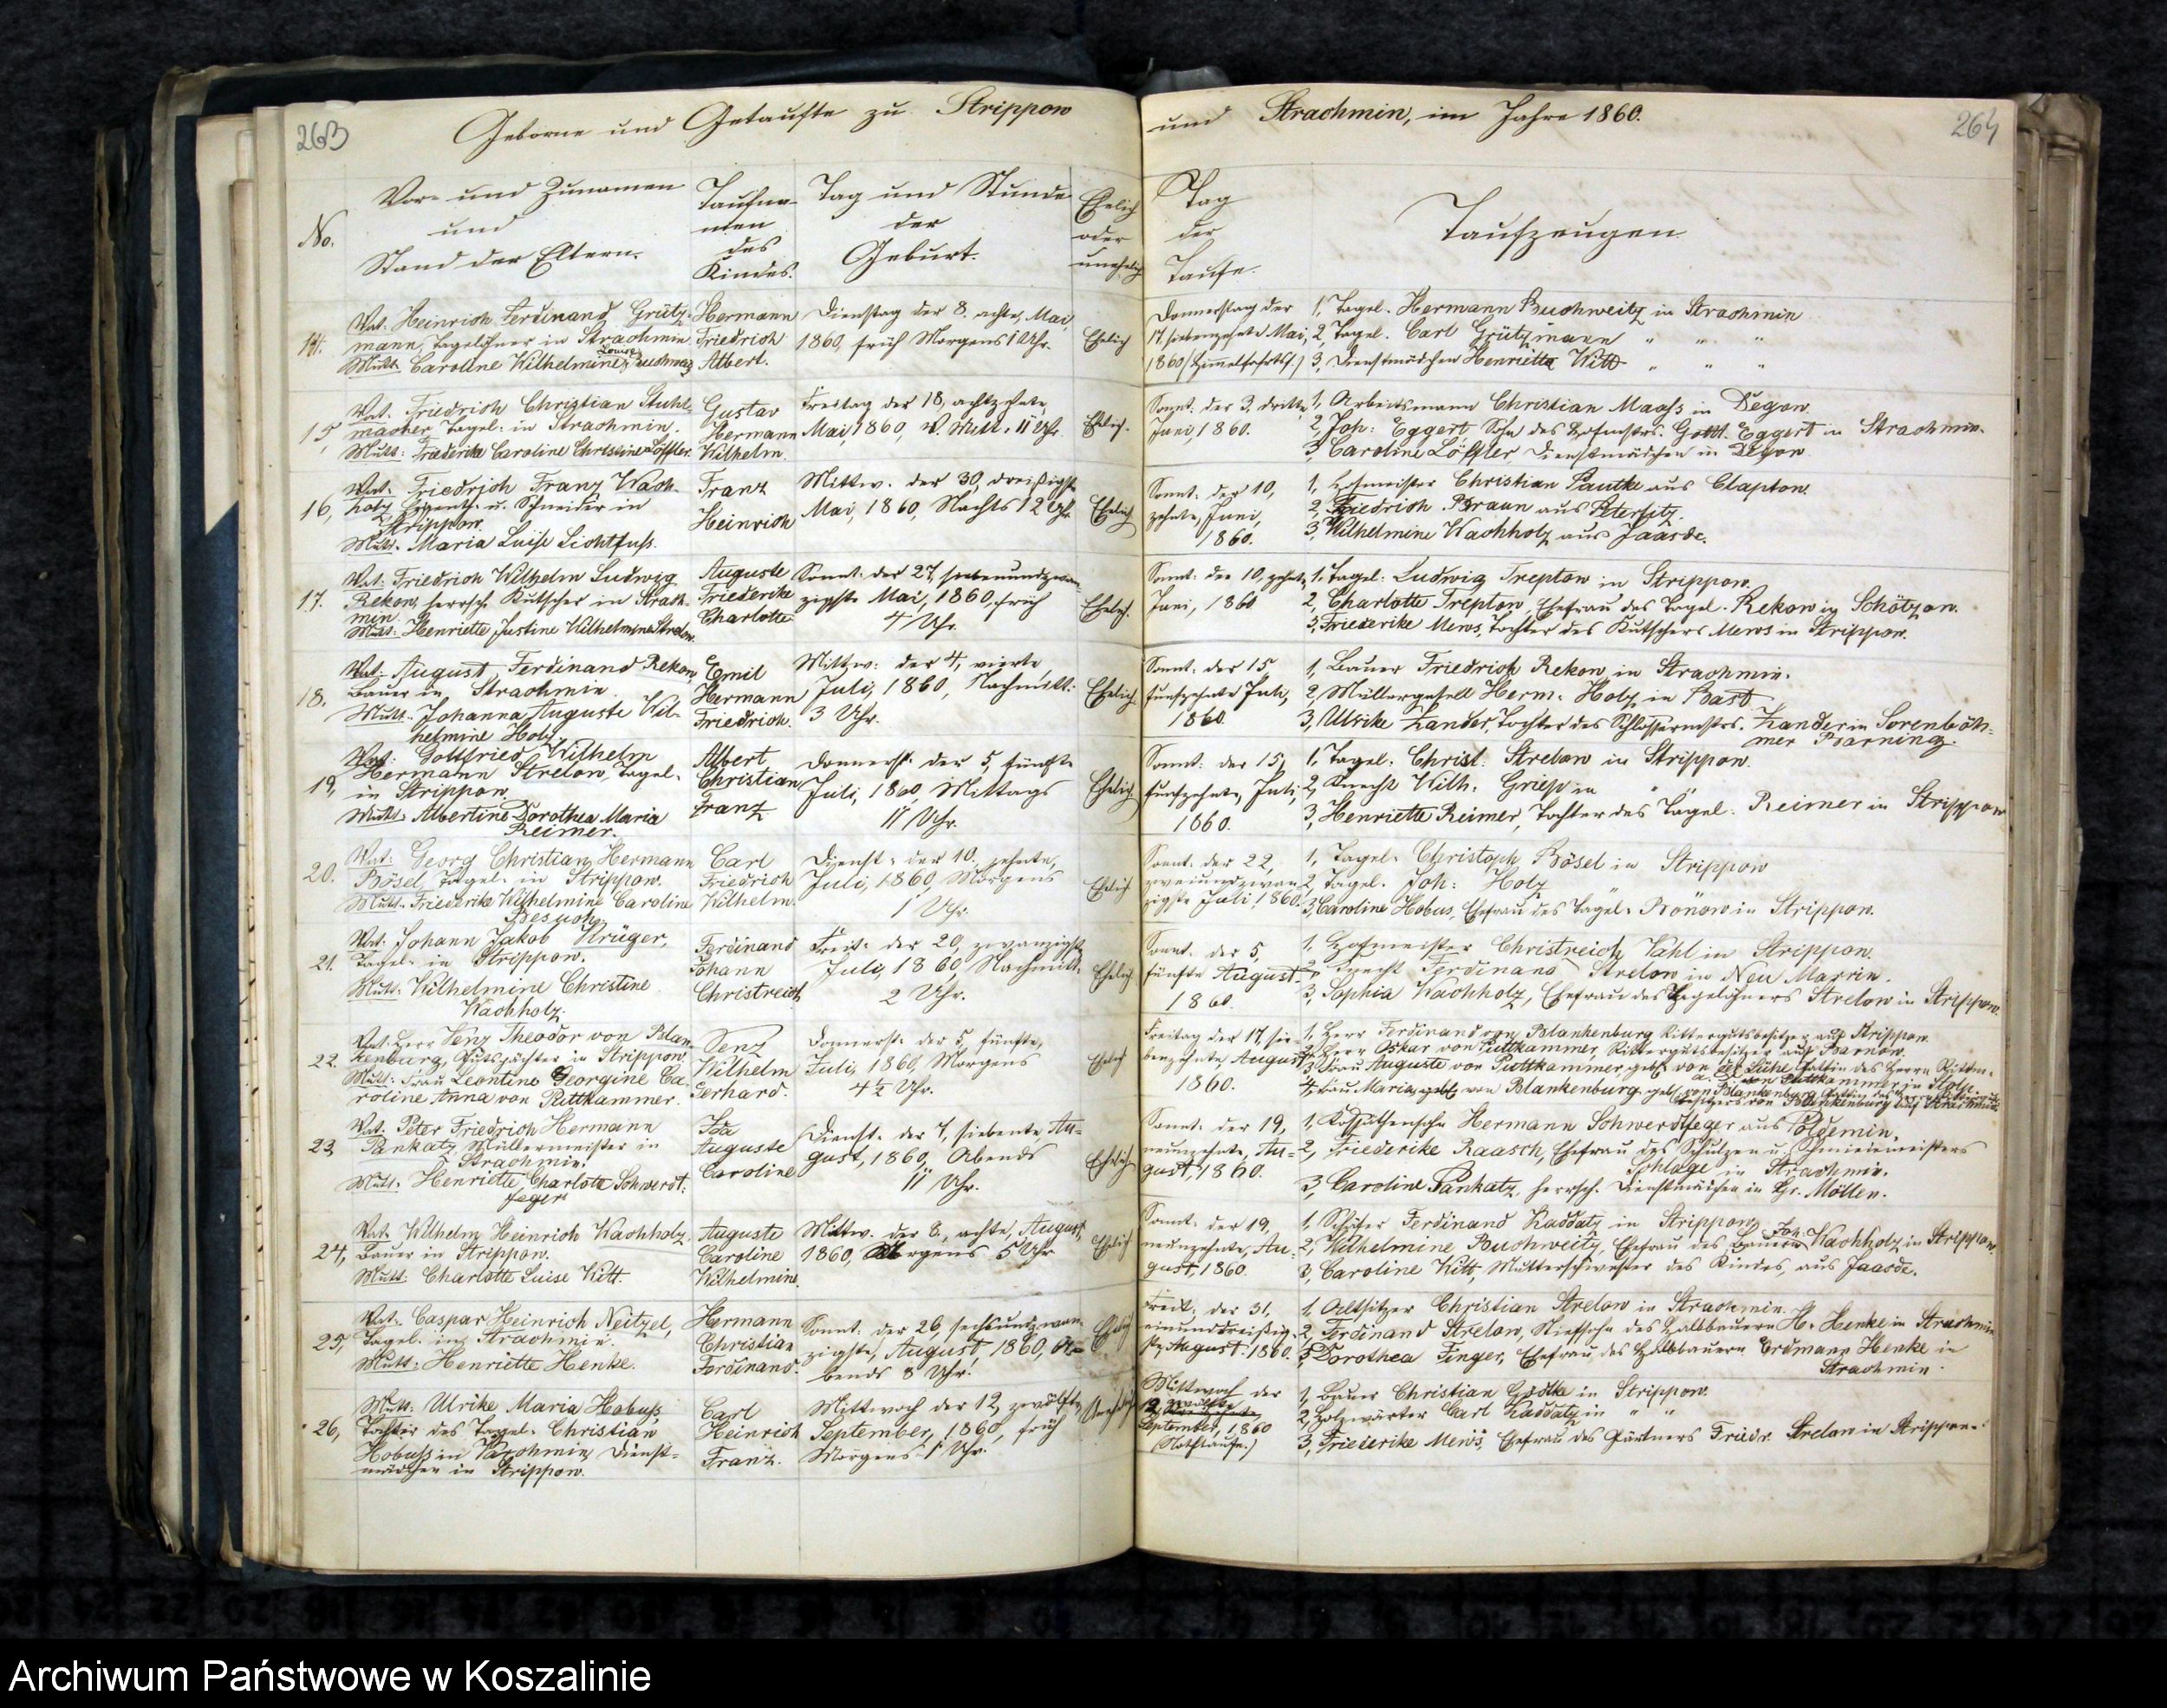 263
Geborne und Getaufte zu Strippow
No.
Vor- und Zunamen
und
Stand der Eltern.
Taufna-
men
des
Kindes.
Tag und Stunde
der
Geburt.
Ehelich
oder
unehelich
14.
Vat. Heinrich Ferdinand Grütz-
mann, Tagelöhner in Strachmin
Mutt. Caroline Wilhelmine Louise
Hermann
Friedrich
Albert.
Dienstag der 8, achte, Mai,
1860, früh Morgens 1 Uhr.
Ehelich
15,
Vat. Friedrich Christian Stuhl-
macher, Tagel. in Strachmin.
Mutt: Friederike Caroline Christine Löffler.
Gustav
Hermann
Wilhelm.
Freitag der 18, achtzehnte,
Mai, 1860, V. Mitt. 11 Uhr
Ehelich.
16,
Vat. Friedrich Franz Wach-
holz, Eigenth. u. Schneider in
Strippow.
Mutt. Maria Luise Lichtfuss.
Franz
Heinrich
Mittw. der 30, dreißigste
Mai, 1860, Nachts 12 Uhr
Ehelich
17.
Vat: Friedrich Wilhelm Ludwig
Rekow, herrsch. Kutscher in Strach-
min.
Mutt: Henriette Justine Wilhelmine Strelow.
Auguste
Friederike
Charlotte
Sonnt. der 27, siebenundzwan-
zigste Mai, 1860, früh
4 Uhr.
Ehelich.
18.
Vat: August Ferdinand Rekow,
Bauer in Strachmin.
Mutt. Johanna Auguste Wil-
helmine Holz.
Emil
Hermann
Friedrich.
Mittw: der 4, vierte,
Juli, 1860, Nachmitt:
3 Uhr.
Ehelich
19,
Vat: Gottfried Wilhelm
Hermann Strelow, Tagel.
in Strippow.
Mutt. Albertine Dorothea Maria
Reimer.
Albert
Christian
Franz
Donnerst. der 5, fünfte
Juli, 1860, Mittags
11 Uhr.
Ehelich
20.
Vat: Georg Christian Hermann
Bösel, Tagel. in Strippow.
Mutt. Friederike Wilhelmine Caroline
Besuch.
Carl
Friedrich
Wilhelm.
Dienst. der 10, zehnte,
Juli, 1860, Morgens
1 Uhr.
Ehelich
21.
Vat. Johann Jakob Krüger,
Tagel. in Strippow.
Mutt. Wilhelmine Christine
Wachholz.
Ferdinand
Johann
Christreich
Freit. der 20, zwanzigste
Juli, 1860, Nachmitt.
2 Uhr.
Ehelich
22.
Vat. Herr Venz Theodor von Blan-
kenburg, Gutspächter in Strippow.
Mutt: Frau Leontine Georgine Ca-
roline Anna von Puttkammer.
Venz
Wilhelm
Gerhard.
Donnerst. der 5, fünfte,
Juli, 1860, Morgens
4½ Uhr.
Ehelich
23,
Vat. Peter Friedrich Hermann
Pankatz, Müllermeister in
Strachmin.
Mutt. Henriette Charlotte Schwerdt-
feger
Ida
Auguste
Caroline
Dienst. der 7, siebente, Au-
gust, 1860, Abends
11 Uhr.
Ehelich
24,
Vat. Wilhelm Heinrich Wachholz,
Bauer in Strippow.
Mutt: Charlotte Luise Witt.
Auguste
Caroline
Wilhelmine.
Mittw. der 8, achte, August,
1860, Morgens 5 Uhr
Ehelich
25,
Vat. Caspar Heinrich Neitzel,
Tagel. in Strachmin.
Mutt: Henriette Henke.
Hermann
Christian
Ferdinand.
Sonnt. der 26, sechsundzwan-
zigste, August, 1860, A-
bends 8 Uhr.
Ehelich
26,
Mutt: Ulrike Maria Hobuss,
Tochter des Tagel. Christian
Hobuss in Varchmin, Dienst-
mädchen in Strippow.
Carl
Heinrich
Franz.
Mittwoch der 12, zwölfte,
September, 1860, früh
Morgens 1 Uhr.
Unehelich
264
und Strachmin, im Jahre 1860.
Tag
der
Taufe.
Taufzeugen
Donnerstag der
17, siebenzehnte Mai,
1860 (Himmelfahrtsf.)
1, Tagel. Hermann Buchweitz in Strachmin
2, Tagel. Carl Grützmann " " "
3, Dienstmädchen Henriette Witt " " "
Sonnt. der 3, dritte
Juni, 1860.
1, Arbeitsmann Christian Maass in Degow.
2, Joh: Eggert Sohn des Hofmstrs. Gottl. Eggert in Strachmin.
3, Caroline Löffler, Dienstmädchen in Degow
Sonnt. der 10,
zehnte, Juni,
1860.
1, Hofmeister Christian Pautke aus Clapton.
2, Friedrich Braun aus Petersitz.
3, Wilhelmine Wachholz aus Jaasde.
Sonnt. der 10, zehnte
Juni, 1860
1, Tagel: Ludwig Treptow in Strippow.
2, Charlotte Treptow, Ehefrau des Tagel. Rekow in Schötzow.
3, Friederike Mews, Tochter des Kutschers Mews in Strippow.
Sonnt. der 15,
funfzehnte Juli,
1860
1, Bauer Friedrich Rekow in Strachmin.
2, Müllergesell Herm: Holz in Bast.
3, Ulrike Zander, Tochter des Schlossermstrs. Zander in Sorenböh-
mer Barning.
Sonnt. der 15,
funfzehnte, Juli,
1860.
1, Tagel. Christ. Strelow in Strippow.
2, Knecht Wilh. Griep in " "
3, Henriette Reimer, Tochter des Tagel. Reimer in Strippow
Sonnt. der 22,
zweiundzwan-
zigste Juli 1860.
1, Tagel. Christoph Bösel in Strippow
2, Tagel. Joh: Holz " "
3, Caroline Hobus, Ehefrau des Tagel. Bönow in Strippow.
Sonnt. der 5,
fünfte August
1860.
1, Hofmeister Christreich Vahl in Strippow.
2, Knecht Ferdinand Strelow in Neu Marrin.
3, Sophia Wachholz, Ehefrau des Tagelöhners Strelow in Strippow.
Freitag der 17, sie-
benzehnte, August,
1860.
1, Herr Ferdinand von Blankenburg Rittergutsbesitzer auf Strippow.
2, Herr Oskar von Puttkammer, Rittergutsbesitzer auf Barnow.
3, Frau Auguste von Puttkammer, geb. von der Lühe Gattin des Herrn Rittm.
a. D. von Puttkammer in Stolp.
4, Frau Maria von Blankenburg geb. von Blankenburg, Gattin des Herrn Ritterguts-
besitzers von Blankenburg auf Strachmin.
Sonnt. der 19,
neunzehnte, Au-
gust, 1860.
1, Kossäthensohn Hermann Schwerdtfeger aus Poldemin.
2, Friederike Raasch, Ehefrau des Schulzen u. Schmiedemeisters
Schlage in Strachmin.
3, Caroline Pankatz, herrsch. Dienstmädchen in Gr. Möllen.
Sonnt. der 19,
neunzehnte, Au-
gust, 1860.
1, Schäfer Ferdinand Raddatz in Strippow
2, Wilhelmine Buchweitz, Ehefrau des Bauern Joh. Wachholz in Strippow.
3, Caroline Witt, Mutterschwester des Kindes, aus Jaasde.
Freit. der 31,
einunddreißig-
ste, August. 1860.
1, Altsitzer Christian Strelow in Strachmin.
2, Ferdinand Strelow, Stiefsohn des Halbbauern H. Henke in Strachmin
3, Dorothea Finger, Ehefrau des Halbbauern Erdmann Henke in
Strachmin.
Mittwoch der
12, zwölfte
September, 1860
(Nothtaufe.)
1, Bauer Christian Godtke in Strippow.
2, Holzwärter Carl Raddatz in " "
3, Friederike Mews, Ehefrau des Gärtners Friedr. Strelow in Strippow.
Archiwum Państwowe w Koszalinie